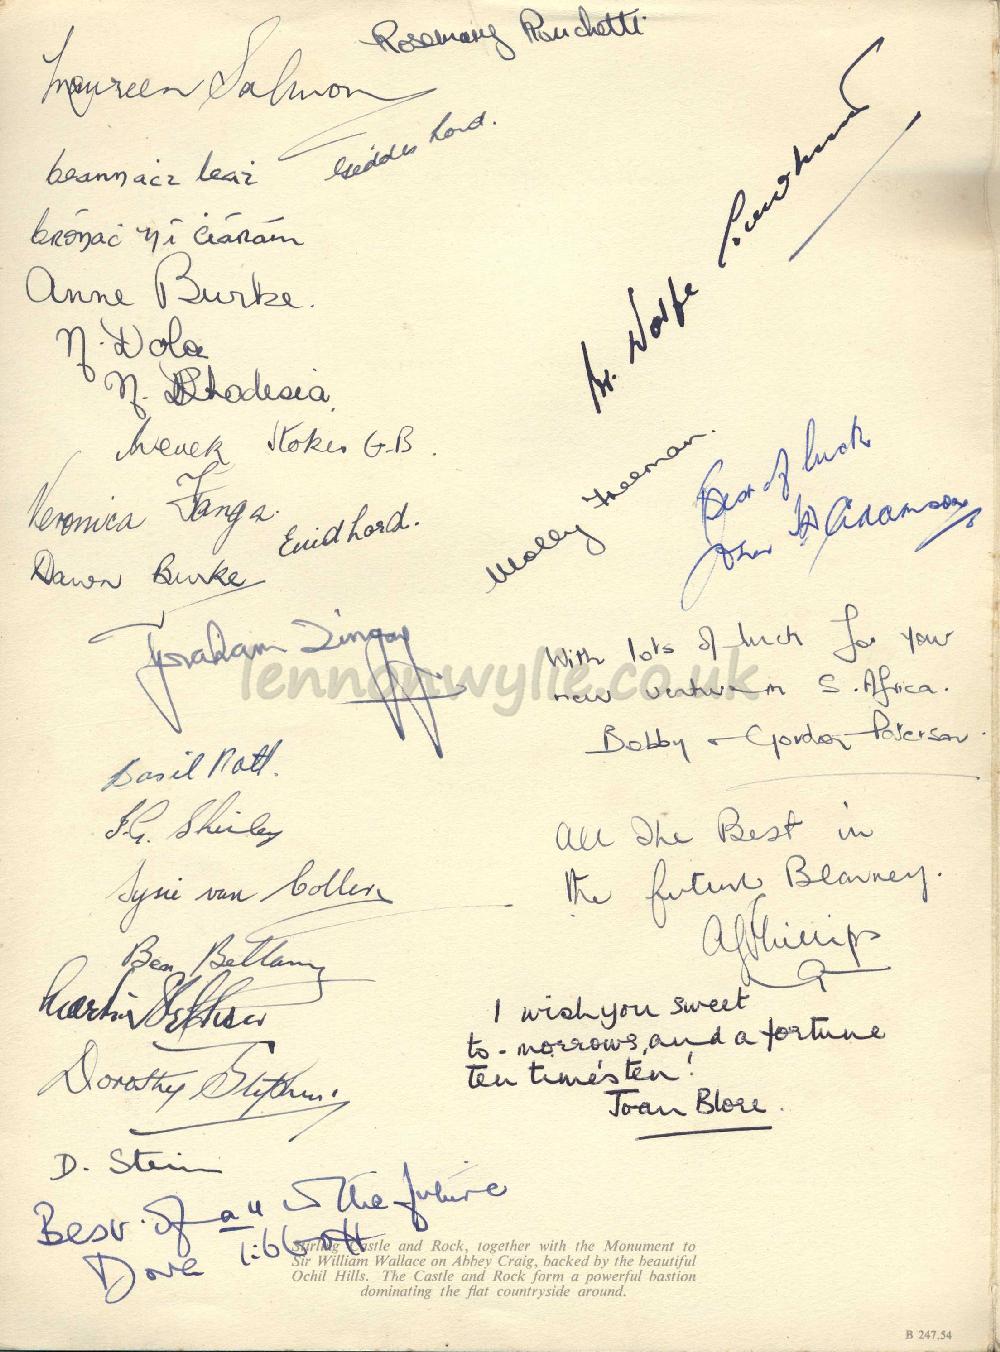 Rosemary Ronchetti
Maureen Salmon
Geddes Lord.
beannact leat
brónac ní ciárám
Anne Burke.
N. Ndola
N. Rhodesia.
Stokes G.B.
Veronica Janga.
Enid Lord.
Dawn Burke
Wolfe
Molly Freeman.
Best of luck
John Adamson
Graham
lennonwylie.co.uk
With lots of luck for your
new venture in S. Africa.
Bobby & Gordon Paterson.
Basil Natt.
F.G. Shirley
van Collen
Ben Bellamy
Martin
Dorothy Stephens.
D. Stein
All The Best in
the future Blarney.
AG Phillips
I wish you sweet
to-morrows, and a fortune
ten times ten!
Joan Blore.
Best of all in the future
Dave Libbott
Stirling Castle and Rock, together with the Monument to
Sir William Wallace on Abbey Craig, backed by the beautiful
Ochil Hills. The Castle and Rock form a powerful bastion
dominating the flat countryside around.
B 247.54